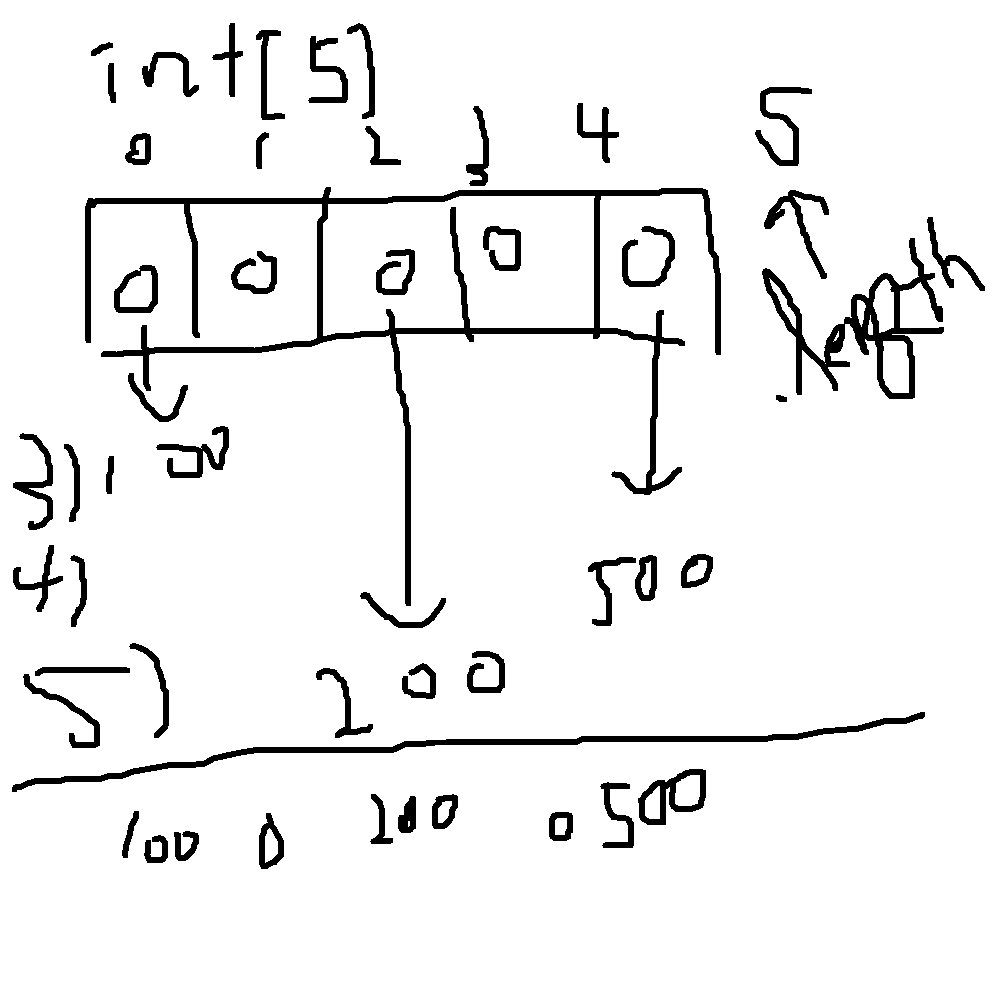 int[5]
0 1 2 3 4 5
0 0 0 0 0
.length
3) 100
4) 500
5) 200
100 0 200 0 500